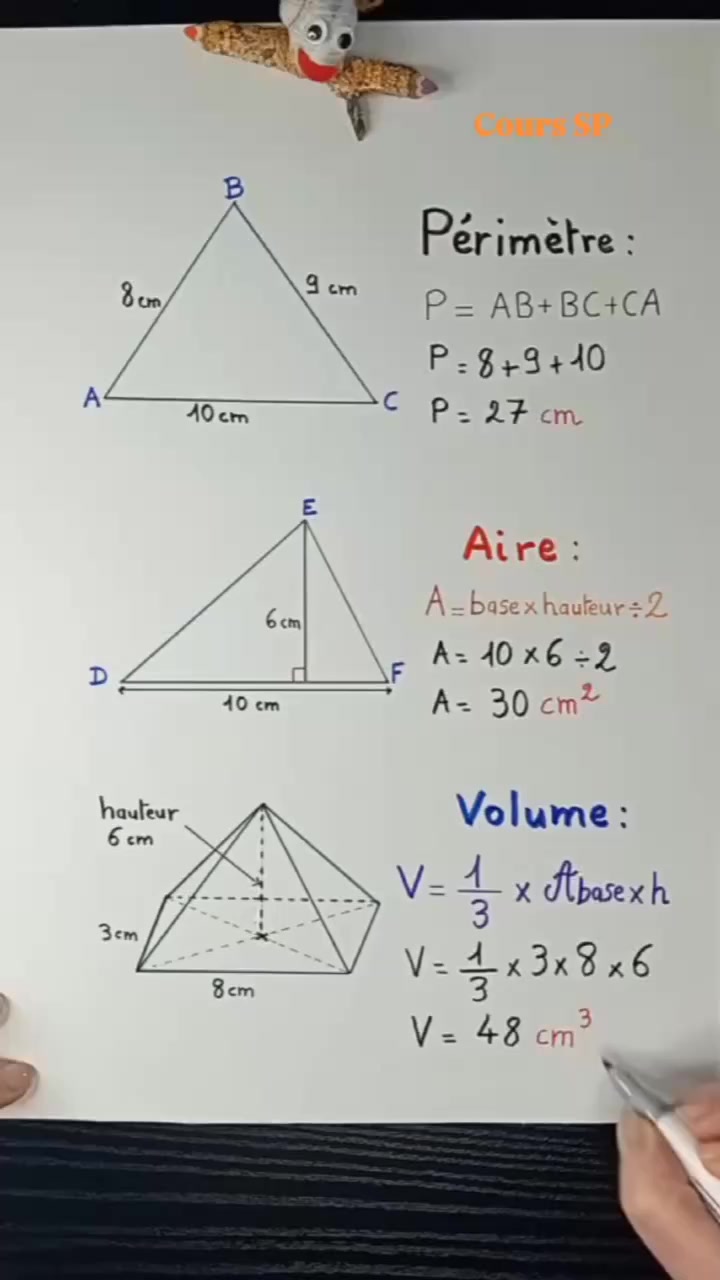 Cours SP
B
8cm
9 cm
A
C
10 cm
Périmètre :
P = AB+BC+CA
P = 8+9+10
P = 27 cm
E
6 cm
D
F
10 cm
Aire :
A = base x hauteur ÷ 2
A = 10 x 6 ÷ 2
A = 30 cm²
hauteur
6 cm
3 cm
8 cm
Volume :
V = 1/3 x Abase x h
V = 1/3 x 3 x 8 x 6
V = 48 cm³